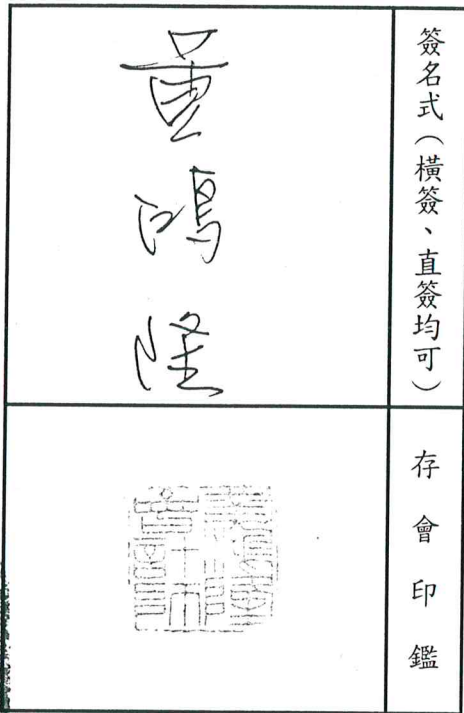 簽名式（橫簽、直簽均可）
黃鴻隆
存會印鑑